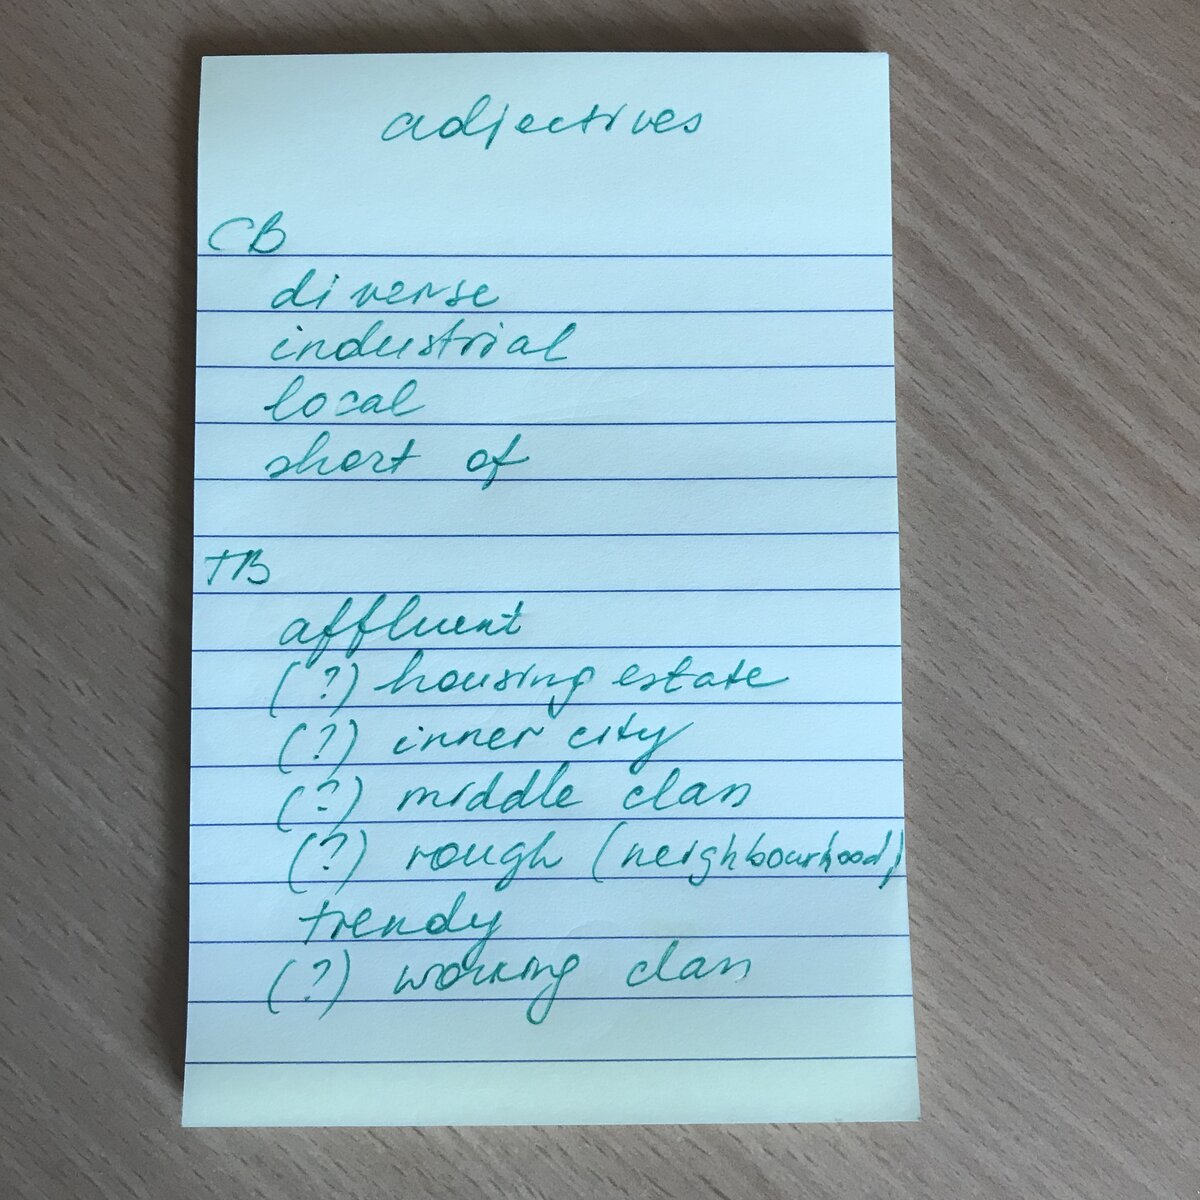 adjectives
CB
diverse
industrial
local
short of
TB
affluent
(?) housing estate
(?) inner city
(?) middle class
(?) rough (neighbourhood)
trendy
(?) working class